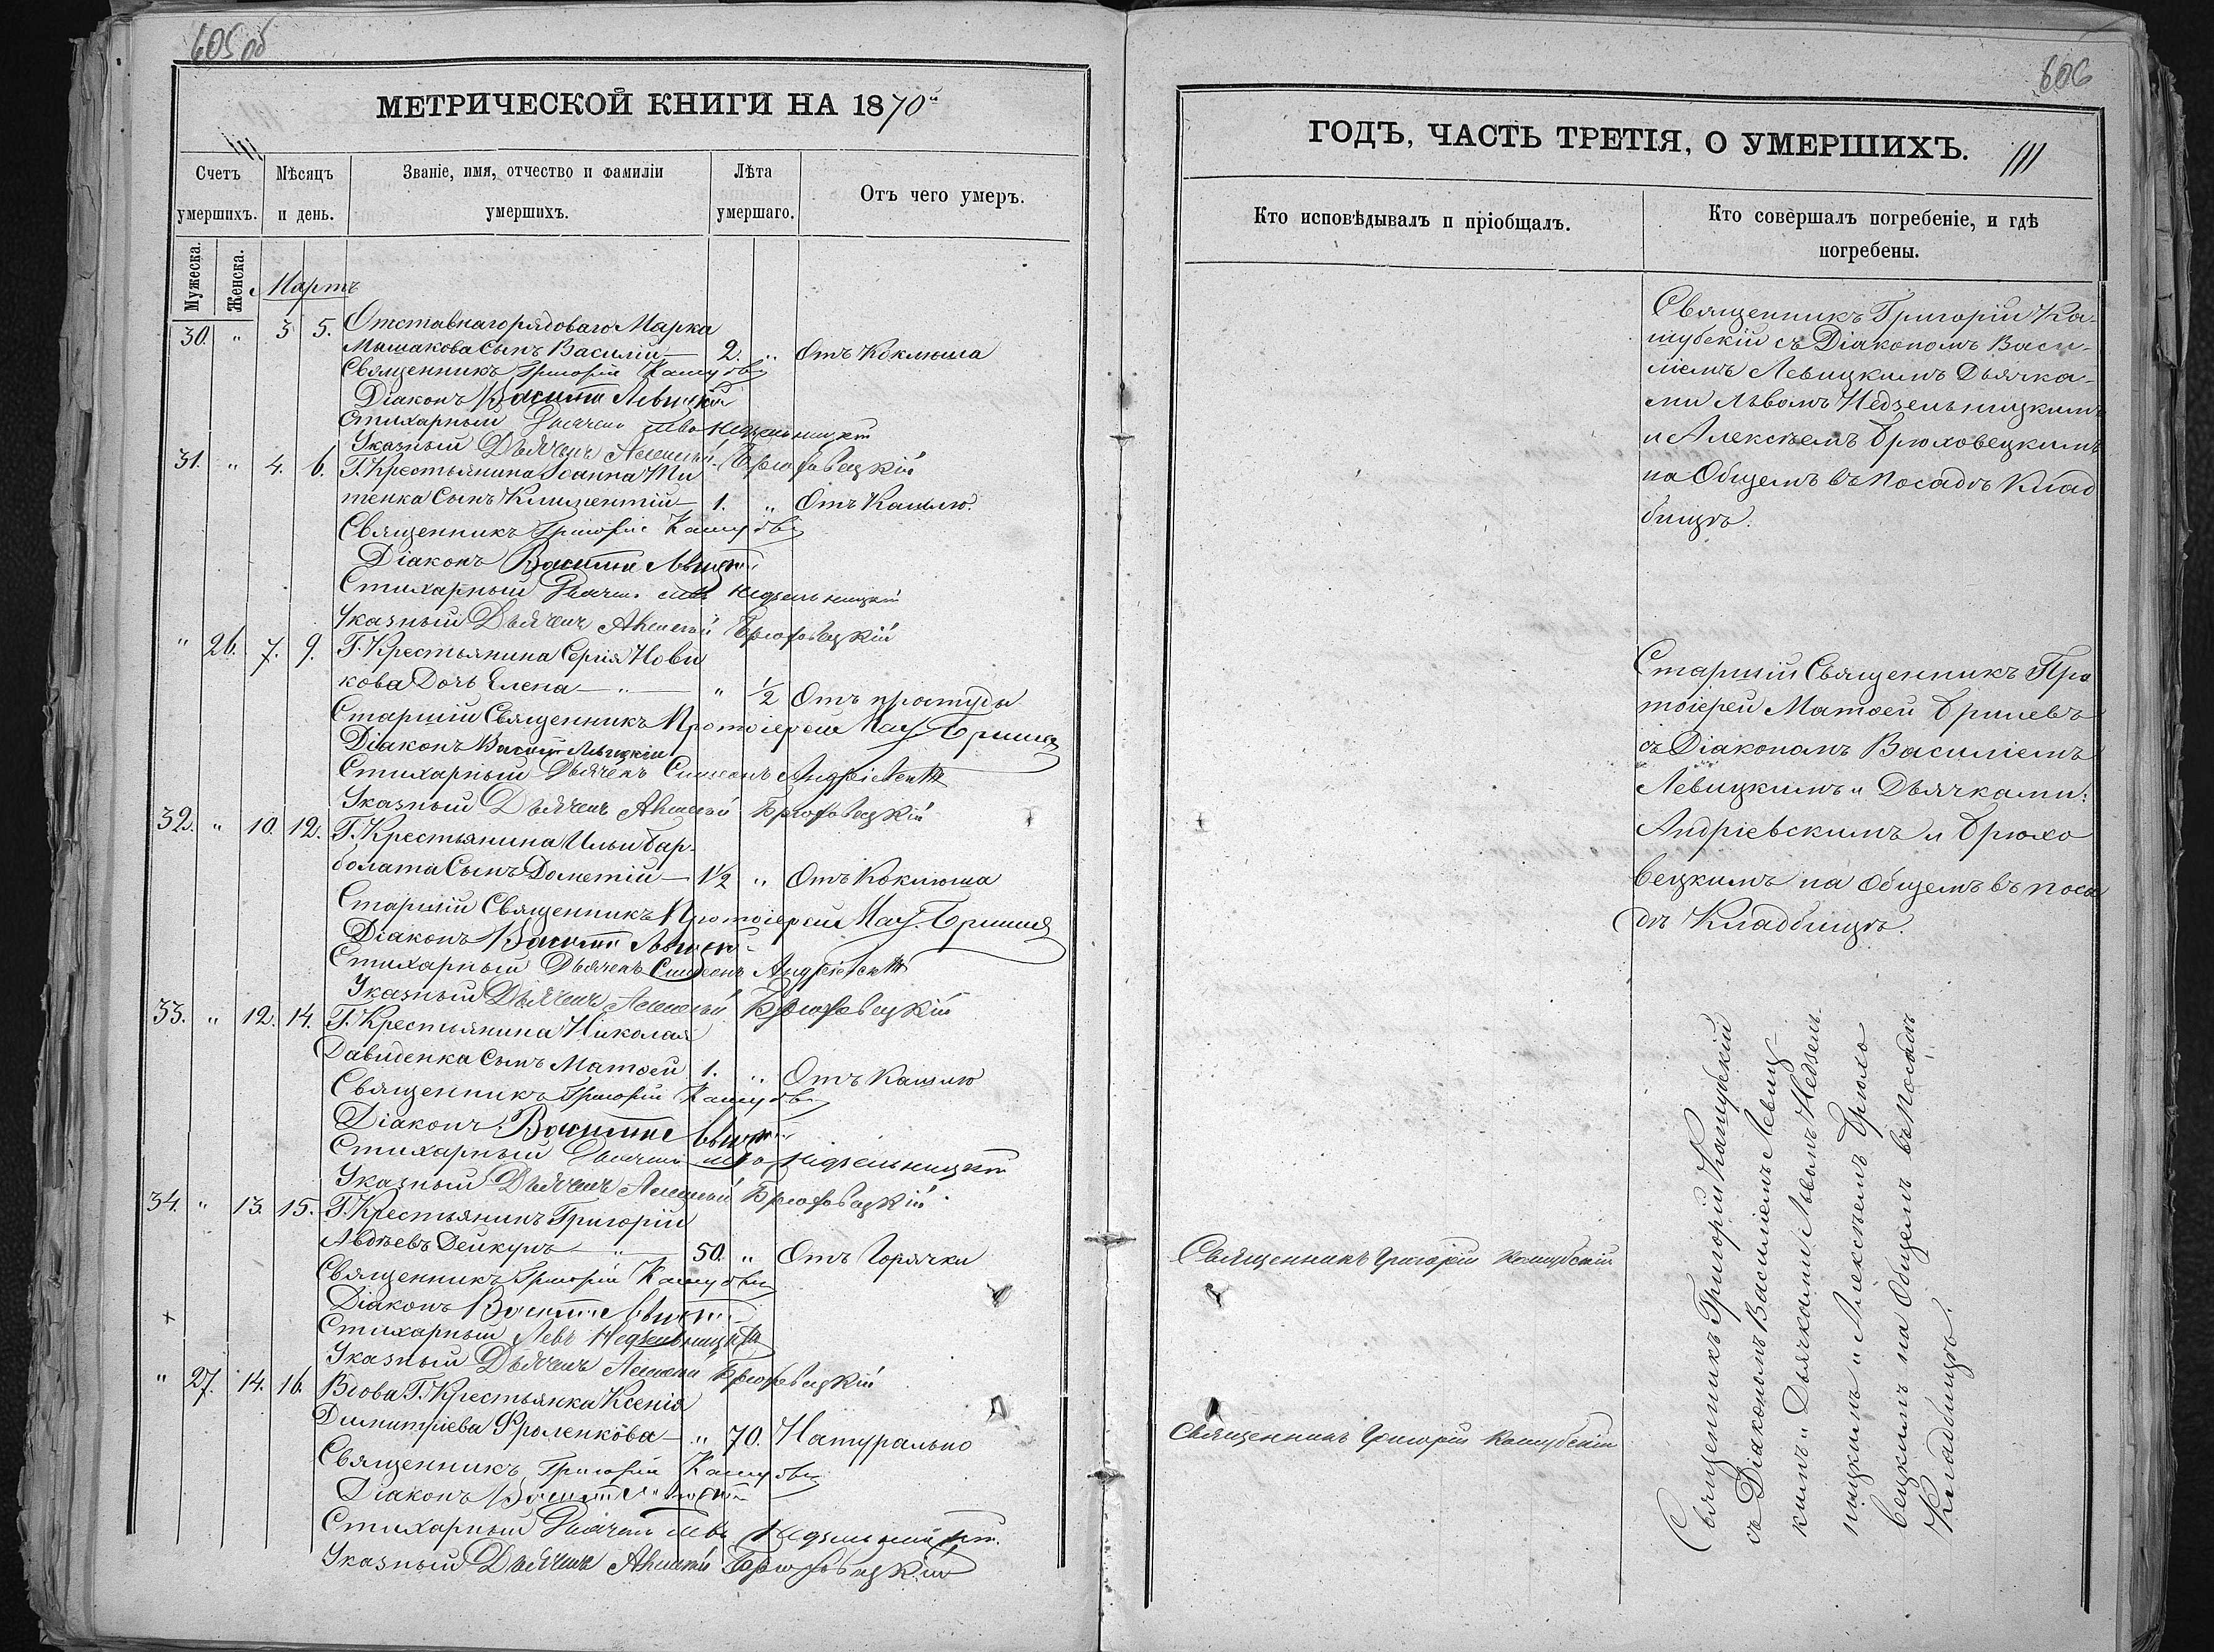 605 об
МЕТРИЧЕСКОЙ КНИГИ НА 1870й
Счетъ умершихъ.
Мѣсяцъ и день.
Званіе, имя, отчество и фамиліи умершихъ.
Лѣта умершаго.
Отъ чего умеръ.
Мужеска.
Женска.
Мартъ
30. " 3 5. Отставнаго рядоваго Марка
Мышакова Сынъ Василій — 2. " Отъ Коклюша
Священникъ Григорій Кашубскій
Діаконъ Василій Левицкій
Стихарный Дьячекъ Левъ Недзельницкій
Указный Дьячекъ Алексѣй Брюховецкій
31. " 4. 6. Г. Крестьянина Іоанна Ти
тенка Сынъ Климентій — 1. " Отъ Кашлю.
Священникъ Григорій Кашубскій
Діаконъ Василій Левицкій
Стихарный Дьячекъ Левъ Недзельницкій
Указный Дьячекъ Алексѣй Брюховецкій
" 26. 7. 9. Г. Крестьянина Сергія Нови
кова Дочь Елена — " — " 1/2 Отъ простуды
Старшій Священникъ Протоіерей Мат. Бршевъ
Діаконъ Василій Левицкій
Стихарный Дьячекъ Симеонъ Андріевскій
Указный Дьячекъ Алексѣй Брюховецкій
32. " 10. 12. Г. Крестьянина Ильи Бар-
болата Сынъ Дометій — 1 1/2 " Отъ Коклюша
Старшій Священникъ Протоіерей Мат. Бршевъ
Діаконъ Василій Левицкій
Стихарный Дьячекъ Симеонъ Андріевскій
Указный Дьячекъ Алексѣй Брюховецкій
33. " 12. 14. Г. Крестьянина Николая
Давиденка Сынъ Матѳей 1. " Отъ Кашлю
Священникъ Григорій Кашубскій
Діаконъ Василій Левицкій
Стихарный Дьячекъ Левъ Недзельницкій
Указный Дьячекъ Алексѣй Брюховецкій
34. " 13. 15. Г. Крестьянинъ Григорій
Авдѣевъ Дейкунъ — " — 50. " Отъ Горячки
Священникъ Григорій Кашубскій
Діаконъ Василій Левицкій
Стихарный Левъ Недзельницкій
Указный Дьячекъ Алексѣй Брюховецкій
" 27. 14. 16. Вдова Г. Крестьянка Ксенія
Димитріева Фроленкова — " 70. Натурально
Священникъ Григорій Кашубскій
Діаконъ Василій Левицкій
Стихарный Дьячекъ Левъ Недзельницкій.
Указный Дьячекъ Алексѣй Брюховецкій
606
ГОДЪ, ЧАСТЬ ТРЕТІЯ, О УМЕРШИХЪ.
III
Кто исповѣдывалъ и пріобщалъ.
Кто совершалъ погребеніе, и гдѣ
погребены.
Священникъ Григорій Ка-
шубскій съ Діакономъ Васи-
ліемъ Левицкимъ Дьячка-
ми Львомъ Недзельницкимъ
и Алексѣемъ Брюховецкимъ
на Общемъ въ Посадѣ Клад
бищѣ.
Старшій Священникъ Про
тоіерей Матѳей Бршевъ
съ Діакономъ Василіемъ
Левицкимъ и Дьячками:
Андріевскимъ и Брюхо
вецкимъ на Общемъ въ Поса
дѣ Кладбищѣ.
Священникъ Григорій Кашубскій
Священникъ Григорій Кашубскій
Священникъ Григорій Кашубскій
съ Діакономъ Василіемъ Левиц-
кимъ и Дьячками Львомъ Недзель-
ницкимъ и Алексѣемъ Брюхо
вецкимъ на Общемъ въ Посадѣ
Кладбищѣ.